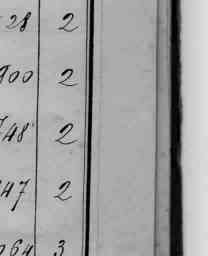 28 2
900 2
748 2
47 2
64 3